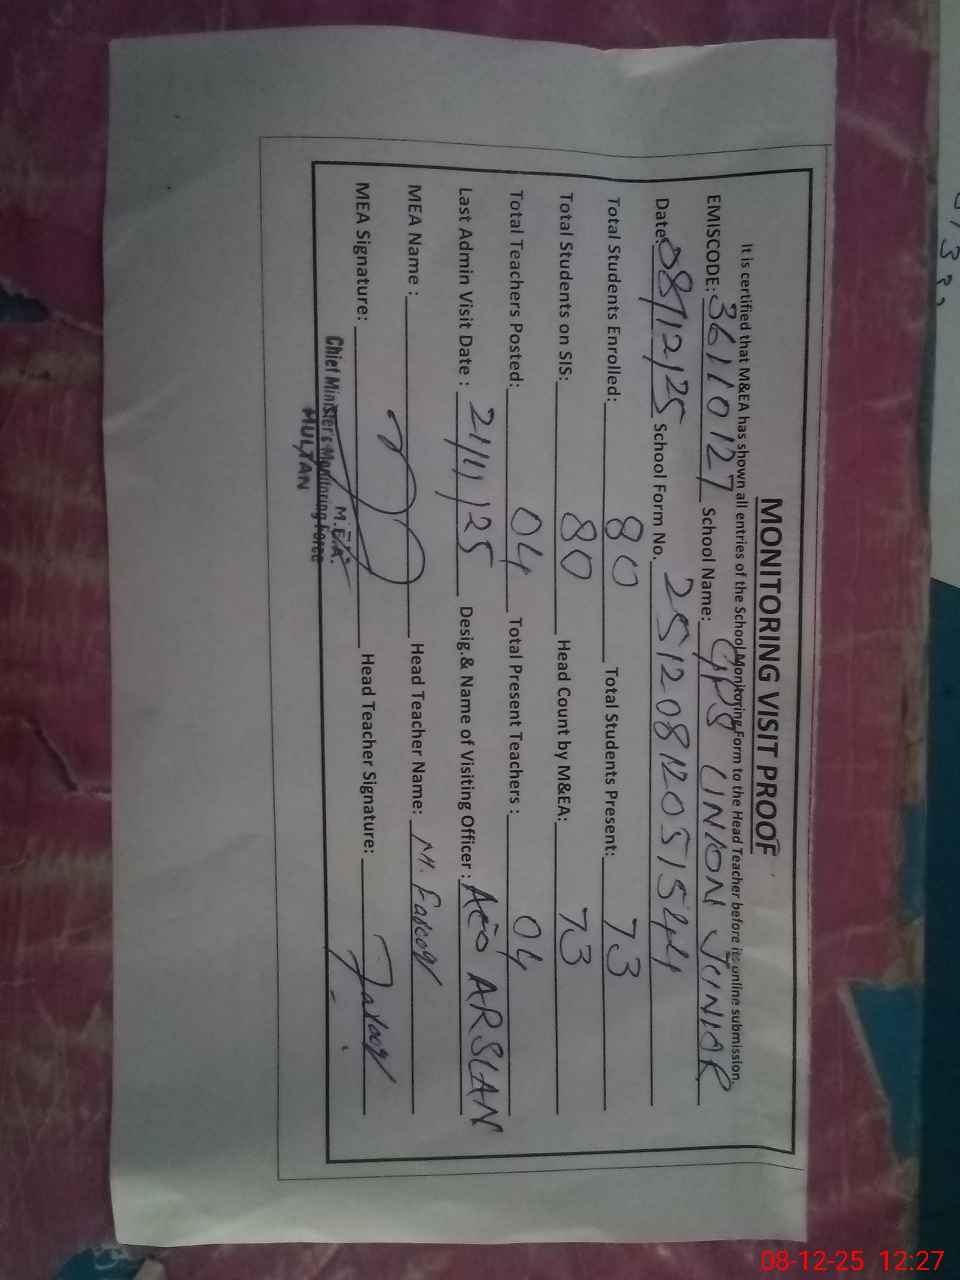 MONITORING VISIT PROOF
It is certified that M&EA has shown all entries of the School Monitoring Form to the Head Teacher before its online submission.
EMISCODE: 36110127 School Name: GPS UNION JUNIOR
Date: 08/12/25 School Form No. 25120812051544
Total Students Enrolled: 80 Total Students Present: 73
Total Students on SIS: 80 Head Count by M&EA: 73
Total Teachers Posted: 04 Total Present Teachers : 04
Last Admin Visit Date : 21/11/25 Desig.& Name of Visiting Officer : AEO ARSLAN
MEA Name : Head Teacher Name: M. Farooq
MEA Signature: Head Teacher Signature: Farooq
M.E.A.
Chief Minister's Monitoring Force
MULTAN
08-12-25 12:27